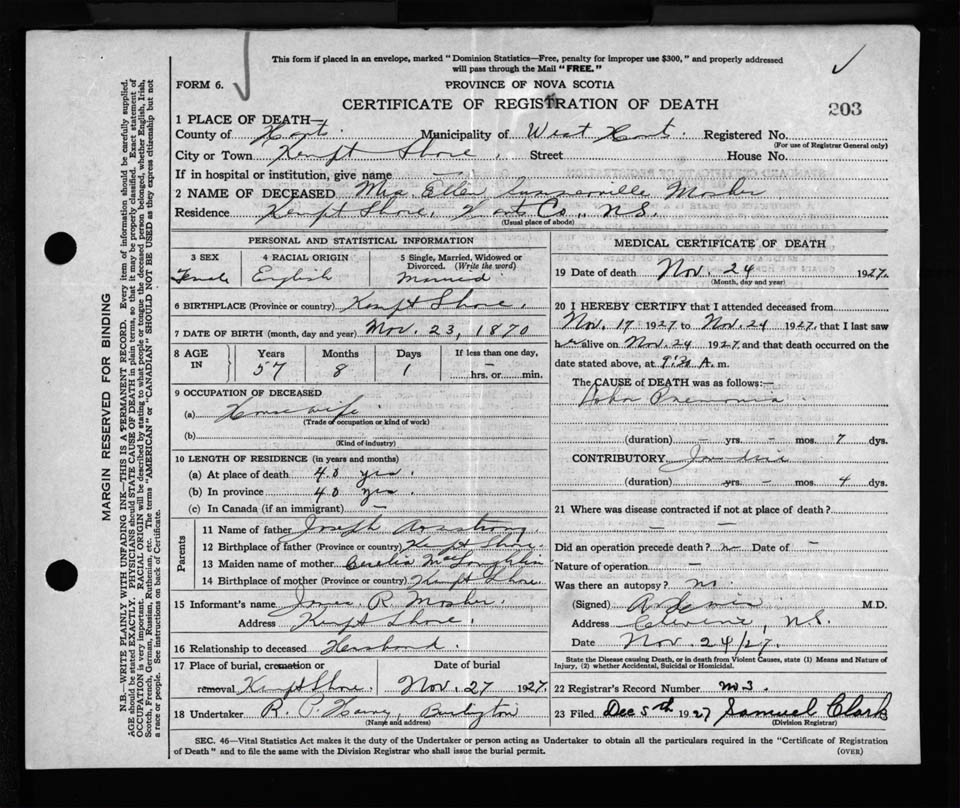 This form if placed in an envelope, marked "Dominion Statistics—Free, penalty for improper use $300," and properly addressed
will pass through the Mail "FREE."
FORM 6.
PROVINCE OF NOVA SCOTIA
CERTIFICATE OF REGISTRATION OF DEATH
203
1 PLACE OF DEATH—
County of Hants. Municipality of West Hants. Registered No.
(For use of Registrar General only)
City or Town Kempt Shore. Street House No.
If in hospital or institution, give name —
2 NAME OF DECEASED Mrs. Ellen Mosher
Residence Kempt Shore, Hants Co., N.S.
(Usual place of abode)
PERSONAL AND STATISTICAL INFORMATION
3 SEX 4 RACIAL ORIGIN 5 Single, Married, Widowed or Divorced. (Write the word)
Female English Married
6 BIRTHPLACE (Province or country) Kempt Shore.
7 DATE OF BIRTH (month, day and year) Mov. 23, 1870
8 AGE IN Years Months Days If less than one day,
57 8 1 — hrs. or min.
9 OCCUPATION OF DECEASED
(a) Housewife
(Trade of occupation or kind of work)
(b)
(Kind of industry)
10 LENGTH OF RESIDENCE (in years and months)
(a) At place of death 40 yrs.
(b) In province 40 yrs.
(c) In Canada (if an immigrant) —
Parents
11 Name of father Joseph Armstrong
12 Birthplace of father (Province or country) Kempt Shore.
13 Maiden name of mother McLoughlin
14 Birthplace of mother (Province or country) Kempt Shore.
15 Informant's name James R. Mosher.
Address Kempt Shore.
16 Relationship to deceased Husband.
17 Place of burial, cremation or removal Kempt Shore. Date of burial Nov. 27 1927.
18 Undertaker R. P. Harvey, Burlington
(Name and address)
MEDICAL CERTIFICATE OF DEATH
19 Date of death Nov. 24 1927.
(Month, day and year)
20 I HEREBY CERTIFY that I attended deceased from
Nov. 17 1927 to Nov. 24 1927, that I last saw
her alive on Nov. 24 1927 and that death occurred on the
date stated above, at A. m.
The CAUSE of DEATH was as follows:—
Lobar Pneumonia
(duration) — yrs. — mos. 7 dys.
CONTRIBUTORY Jaundice
(duration) — yrs. — mos. 4 dys.
21 Where was disease contracted if not at place of death?
— —
Did an operation precede death? no Date of —
Nature of operation —
Was there an autopsy? no.
(Signed) M.D.
Address N.S.
Date Nov. 24/27.
State the Disease causing Death, or in death from Violent Causes, state (1) Means and Nature of
Injury, (2) whether Accidental, Suicidal or Homicidal.
22 Registrar's Record Number no 3.
23 Filed Dec 5th 1927 Samuel Clark
(Division Registrar)
SEC. 46—Vital Statistics Act makes it the duty of the Undertaker or person acting as Undertaker to obtain all the particulars required in the "Certificate of Registration
of Death" and to file the same with the Division Registrar who shall issue the burial permit.
(OVER)
MARGIN RESERVED FOR BINDING
N.B.—WRITE PLAINLY WITH UNFADING INK—THIS IS A PERMANENT RECORD. Every item of information should be carefully supplied.
AGE should be stated EXACTLY. PHYSICIANS should STATE CAUSE OF DEATH in plain terms, so that it may be properly classified. Exact statement of
OCCUPATION is very important. RACIAL ORIGIN will be described by stating to what people or tongue the deceased person belonged, whether English, Irish,
Scotch, French, German, Russian, Ruthenian, etc. The terms "AMERICAN" or "CANADIAN" SHOULD NOT BE USED as they express citizenship but not
a race or people. See instructions on back of Certificate.